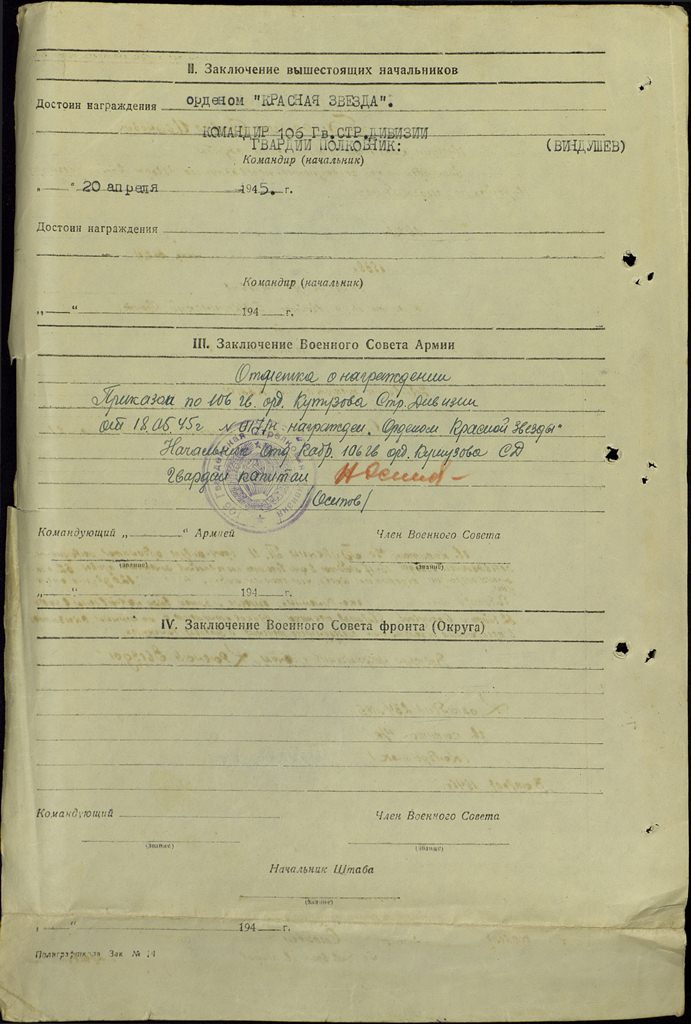 II. Заключение вышестоящих начальников
Достоин награждения орденом "КРАСНАЯ ЗВЕЗДА".
КОМАНДИР 106 Гв.СТР.ДИВИЗИИ
ГВАРДИИ ПОЛКОВНИК: (ВИНДУШЕВ)
Командир (начальник)
„ “ 20 апреля 1945. г.
Достоин награждения
Командир (начальник)
„ “ 194 г.
III. Заключение Военного Совета Армии
Отметка о награждении
Приказом по 106 гв. орд. Кутузова Стр. Дивизии
от 18.05.45г № награжден „Орденом Красной Звезды"
Начальник Отд Кадр. 106 гв орд. Кутузова СД
Гвардии капитан
/Осипов/
Командующий „ “ Армией Член Военного Совета
(звание) (звание)
„ “ 194 г.
IV. Заключение Военного Совета фронта (Округа)
Командующий Член Военного Совета
(звание) (звание)
Начальник Штаба
(звание)
„ “ 194 г.
Зак № 14